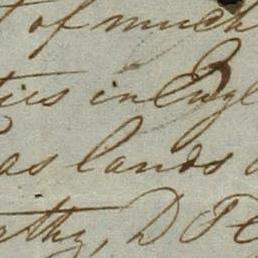 of much
ties in Engl
as lands
rthy, D